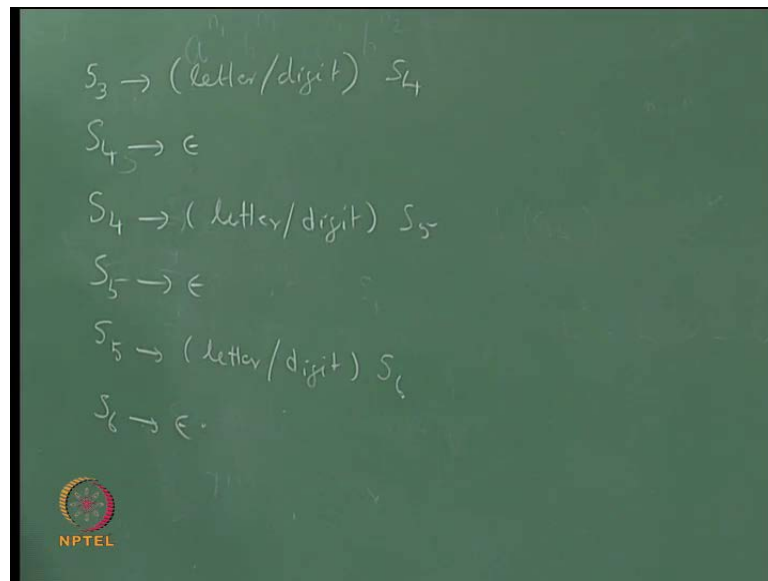 S₃ → (letter/digit) S₄
S₄ → ϵ
S₄ → (letter/digit) S₅
S₅ → ϵ
S₅ → (letter/digit) S₆
S₆ → ϵ.
NPTEL